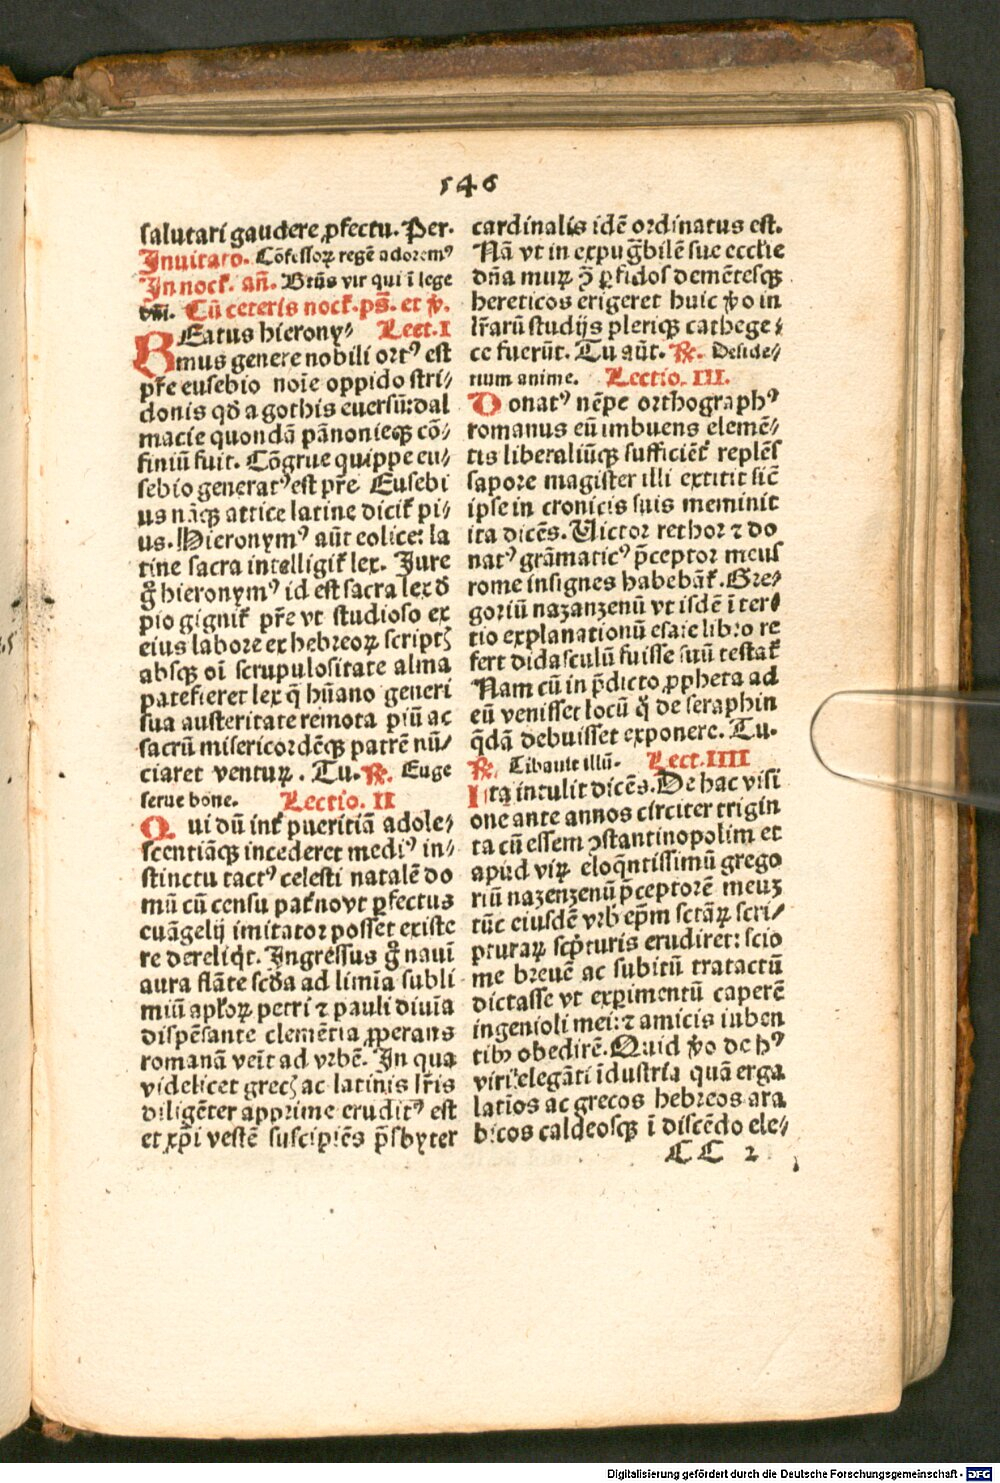 146
salutari gaudere ꝓfectu. Per.
Inuitato. Cõfessoꝝ regẽ adoremꝰ
In nocť. añ. Btũs vir qui ĩ lege
dñi. Cũ ceteris nocť. ps̃. et ꝟ.
BEatus hierony⸗ Lect. I
mus genere nobili ortꝰ est
pr̃e eusebio noĩe oppido stri⸗
donis qđ a gothis euersũ: dal
macie quondã pãnonieqꝫ cõ⸗
finiũ fuit. Cõgrue quippe eu⸗
sebio generatꝰ est pr̃e Eusebi
us nãqꝫ attice latine diciť pi⸗
us. Hieronymꝰ aũt eolice: la
tine sacra intelligiť lex. Iure
g̃ hieronymꝰ id est sacra lex đ
pio gigniť pr̃e vt studioso ex
eius labore ex hebreoꝝ scriptꝭ
absqꝫ oĩ scrupulositate alma
patefieret lex q̃ hũano generi
sua austeritate remota piũ ac
sacrũ misericordẽqꝫ patrẽ nũ⸗
ciaret venturꝝ. Tu. ℞. Euge
serue bone. Lectio. II
Qui dũ inť pueritiã adole⸗
scentiãqꝫ incederet mediꝰ in⸗
stinctu tactꝰ celesti natalẽ do
mũ cũ censu pať no vt ꝑfectus
euãgelij imitator posset existe
re dereliq̇t. Ingressus g̃ nauĩ
aura flãte scđa ad limĩa subli
miũ apľoꝝ petri ⁊ pauli diuĩa
dispẽsante clemẽtia ꝓperans
romanã veĩt ad vrbẽ. In qua
videlicet grecꝭ ac latinis lr̃is
diligẽter apprime eruditꝰ est
et xp̃i vestẽ suscipiẽs p̃sbyter
cardinalis idẽ ordinatus est.
Nã vt in expug̃bilẽ sue eccl̃ie
dña murꝝ ꝯ̃ ꝑfidos demẽtesqꝫ
hereticos erigeret huic ꝟo in
lr̃arũ studijs pleriqꝫ cathege⸗
ce fuerũt. Tu aũt. ℞. Deside⸗
rium anime. Lectio. III.
Donatꝰ nẽpe orthographꝰ
romanus eũ imbuens elemẽ⸗
tis liberaliũqꝫ sufficiẽť replẽs
sapore magister illi extitit sič
ipse in cronicis suis meminit
ita dicẽs. Victor rethor ⁊ do
natꝰ grãmaticꝰ p̃ceptor meus
rome insignes habebãť. Gre⸗
goriũ nazanzenũ vt isdẽ ĩ ter⸗
tio explanationũ esaie libro re
fert didasculũ fuisse suũ testať
Nam cũ in p̃dicto ꝓpheta ad
eũ venisset locũ q̃ de seraphin
q̃dã debuisset exponere. Tu.
℞. Tibauit illũ. Lect. IIII
Ita intulit dicẽs. De hac visi
one ante annos circiter trigin
ta cũ essem ↄstantinopolim et
apud virꝝ eloq̃ntissimũ grego
riũ nazenzenũ p̃ceptorẽ meuꝫ
tũc eiusdẽ vrb̾ ep̃m sctãꝝ scri⸗
pturaꝝ scp̃turis erudiret: scio
me breuẽ ac subitũ tratactũ
dictasse vt exꝑimentũ caperẽ
ingenioli mei: ⁊ amicis iuben
tibꝫ obedirẽ. Quid ꝟo de hꝰ
viri elegãti ĩdustria quã erga
latĩos ac grecos hebreos ara
bicos caldeosqꝫ ĩ discẽdo ele⸗
CC 2
Digitalisierung gefördert durch die Deutsche Forschungsgemeinschaft - DFG